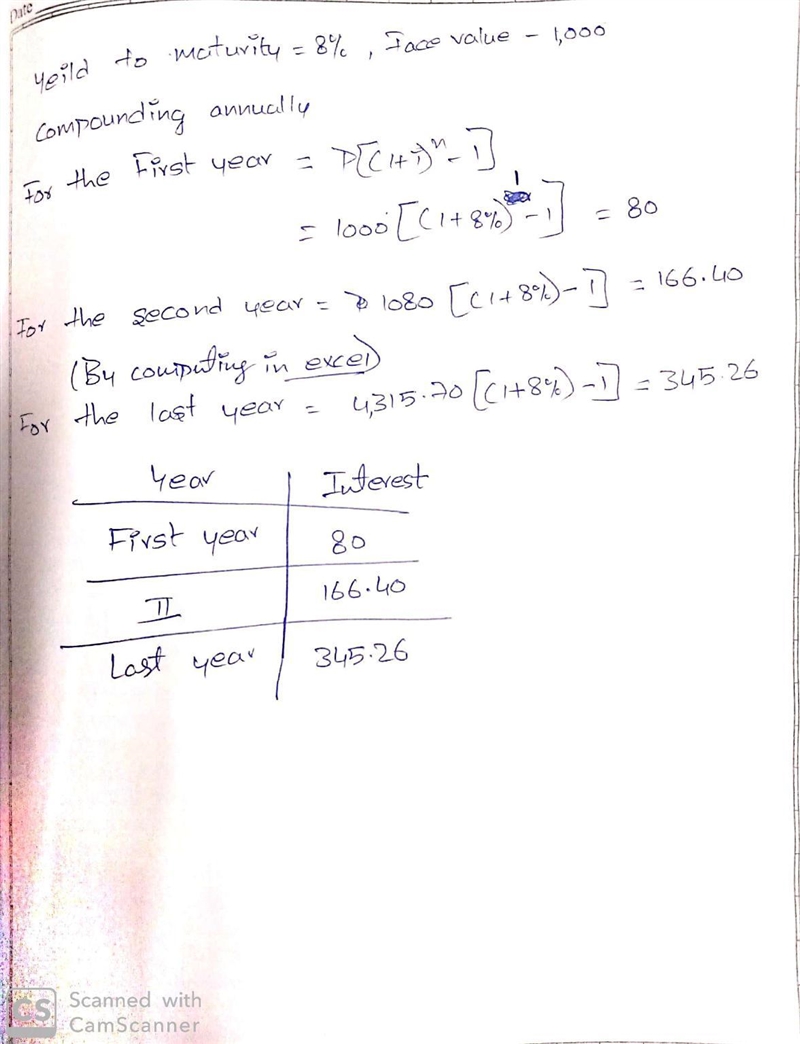 Date
Yeild to maturity = 8% , Face value - 1,000
Compounding annually
For the First year = P[(1+i)^n - 1]
= 1000 [(1+8%)^1 - 1] = 80
For the second year = 1080 [(1+8%) - 1] = 166.40
(By computing in excel)
For the last year = 4,315.70 [(1+8%) - 1] = 345.26
Year | Interest
First year | 80
II | 166.40
Last year | 345.26
CS Scanned with
CamScanner